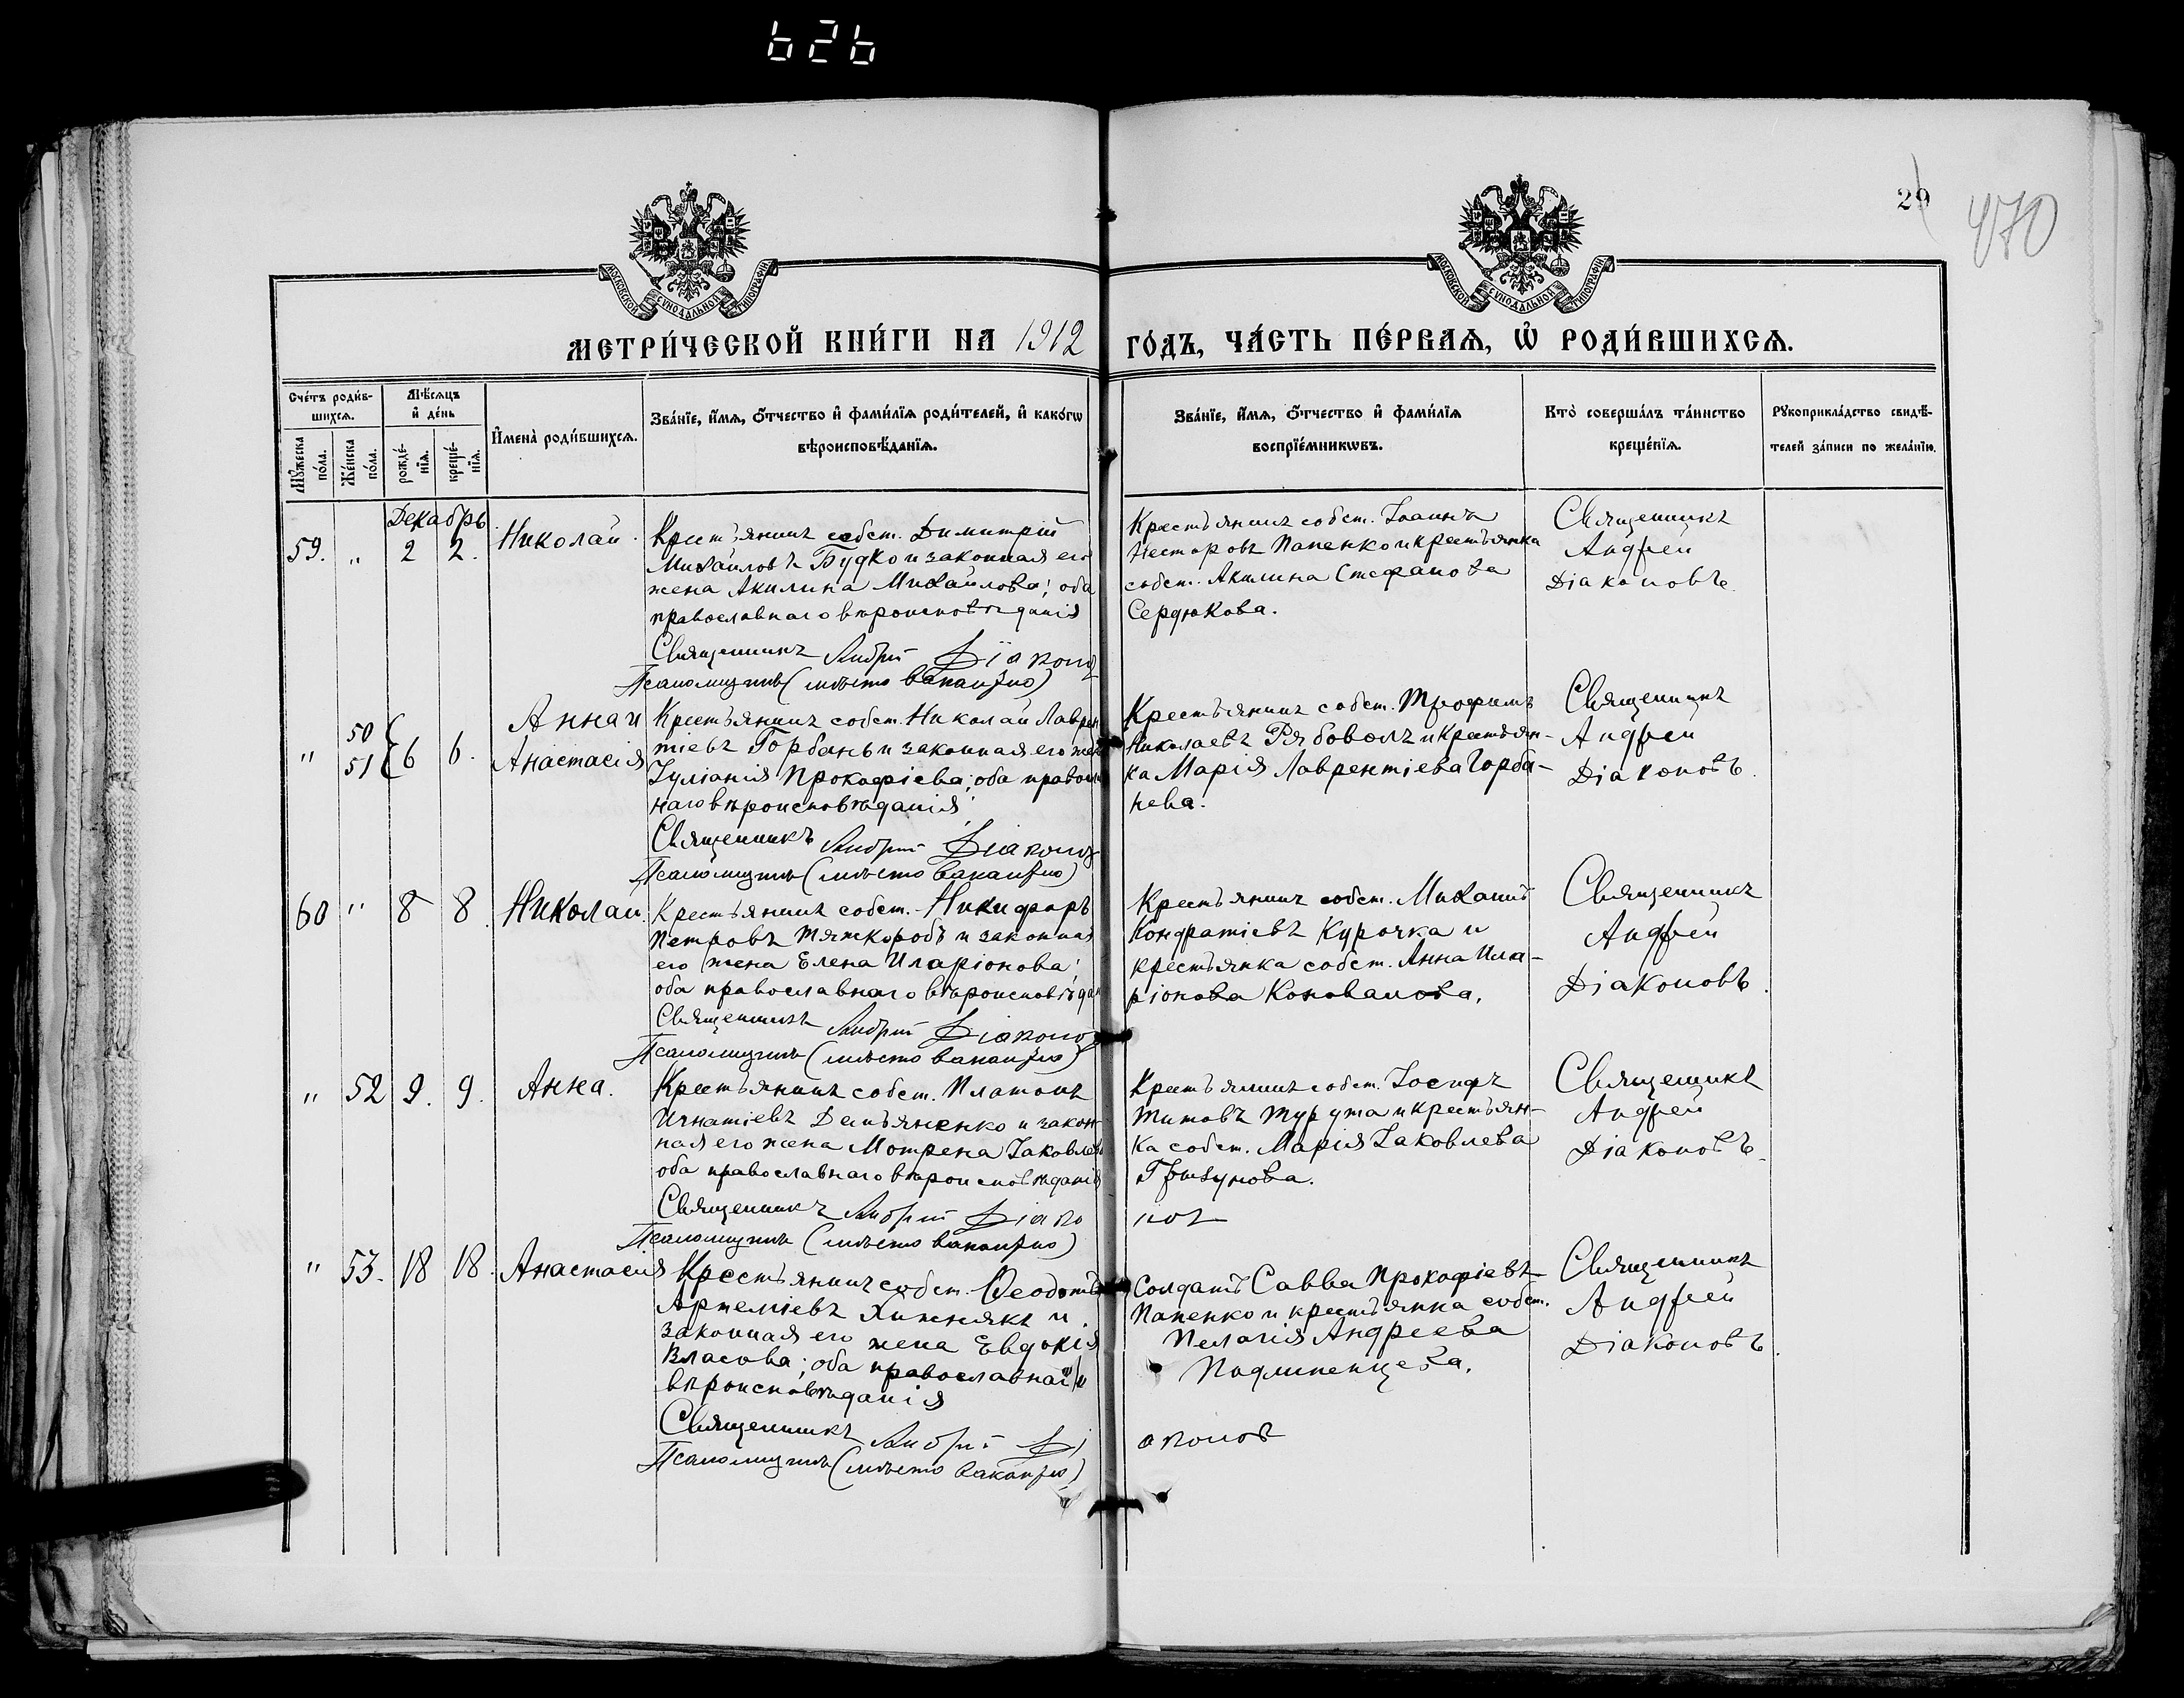 626
29
470
МОСКОВСКОЙ СѴНОДАЛЬНОЙ ТИПОГРАФІИ
МОСКОВСКОЙ СѴНОДАЛЬНОЙ ТИПОГРАФІИ
МЕТРИ́ЧЕСКОЙ КНИ́ГИ НА 1912 ГО́ДЪ, ЧА́СТЬ ПЕ́РВАѦ, Ѡ҆ РОДИ́ВШИХСѦ.
Сче́тъ роди́в-
шихсѧ.
Мꙋ́жеска по́ла.
Же́нска по́ла.
Мѣ́сѧцъ
и҆ де́нь
рожде́-
нїѧ.
креще́-
нїѧ.
И҆мена̀ роди́вшихсѧ.
Зва́нїе, и҆́мѧ, ѻ҆́тчество и҆ фами́лїѧ роди́телей, и҆ како́гѡ
вѣроисповѣ́данїѧ.
Зва́нїе, и҆́мѧ, ѻ҆́тчество и҆ фами́лїѧ
воспрїе́мникѡвъ.
Кто̀ соверша́лъ та́инство
креще́нїѧ.
Рꙋкоприкла́дство свидѣ́-
телей за́писи по жела́нїю.
Декабрь
59. " 2 2. Николай.
Крестьянинъ собст. Димитрій
Михайловъ Будко и законная его
жена Акилина Михайлова; оба
православнаго вѣроисповѣданія
Священникъ Андрей Діаконовъ
Псаломщикъ (мѣсто вакантно)
Крестьянинъ собст. Іоаннъ
Несторовъ Папенко и крестьянка
собст. Акилина Стефанова
Сердюкова.
Священникъ
Андрей
Діаконовъ.
" 50 51 6 6. Анна и
Анастасія
Крестьянинъ собст. Николай Лаврен
тіевъ Горбань и законная его жена
Іуліанія Прокофіева; оба православ
наго вѣроисповѣданія
Священникъ Андрей Діаконовъ
Псаломщикъ (мѣсто вакантно)
Крестьянинъ собст. Трофимъ
Николаевъ Рябоволъ и крестьян-
ка Марія Лаврентіева Горба-
нева.
Священникъ
Андрей
Діаконовъ.
60 " 8 8. Николай.
Крестьянинъ собст. Никифоръ
Петровъ Тяжкоробъ и законная
его жена Елена Иларіонова;
оба православнаго вѣроисповѣдан
Священникъ Андрей Діаконов
Псаломщикъ (мѣсто вакантно)
Крестьянинъ собст. Михаилъ
Кондратіевъ Курочка и
крестьянка собст. Анна Ила-
ріонова Коновалова.
Священникъ
Андрей
Діаконовъ.
" 52 9. 9. Анна.
Крестьянинъ собст. Платонъ
Игнатіевъ Демьяненко и закон-
ная его жена Мотрена Іаковлева
оба православнаго вѣроисповѣданія
Священникъ Андрей Діако
новъ
Псаломщикъ (мѣсто вакантно)
Крестьянинъ собст. Іосифъ
Титовъ Турута и крестьян-
ка собст. Марія Іаковлева
Священникъ
Андрей
Діаконовъ.
" 53. 18 18. Анастасія
Крестьянинъ собст. Ѳеодотъ
Артеміевъ Хижнякъ и
законная его жена Евдокія
Власова; оба православнаго
вѣроисповѣданія
Священникъ Андрей Ді
аконов
Псаломщикъ (мѣсто вакантно)
Солдатъ Савва Прокофіевъ
Папенко и крестьянка собст.
Пелагія Андреева
Священникъ
Андрей
Діаконовъ.